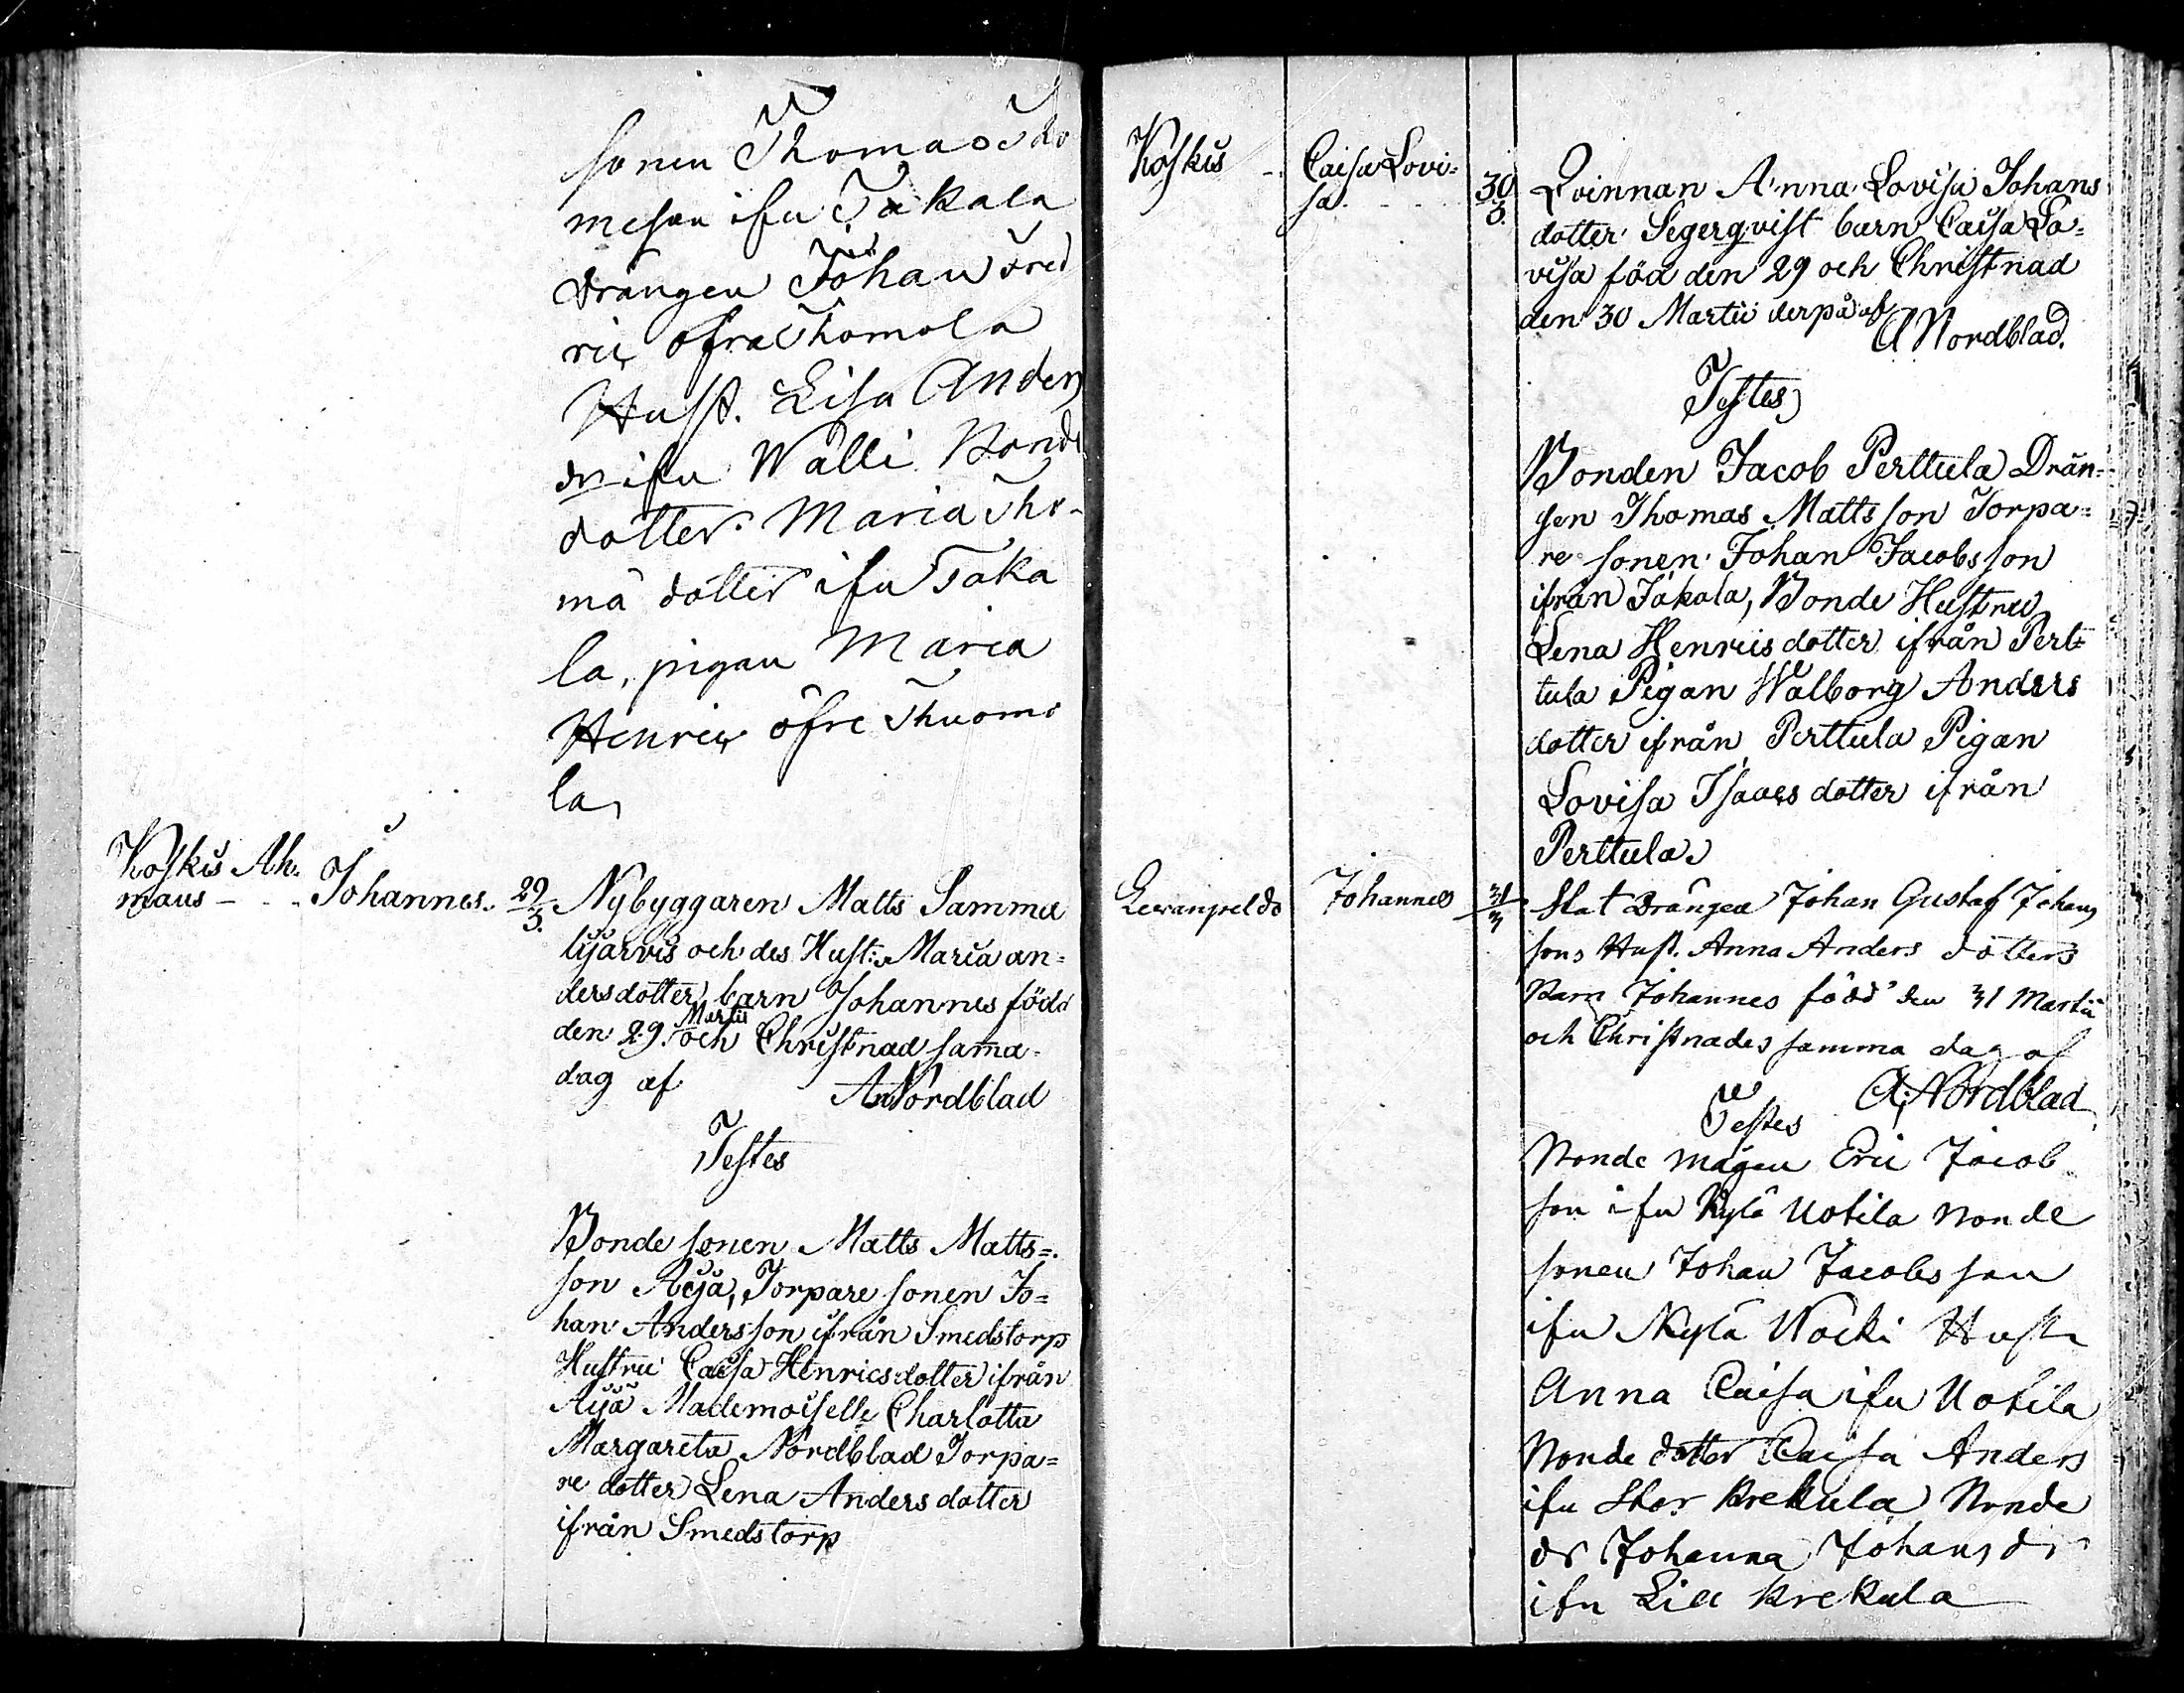 sonen Thomas Tho
messon ifrn Takala
Drängen Johan Fred
ric öfra Thomola
Hust. Lisa Anders
dr ifrn Wälli Bonde
dotter Maria Tho-
ma dotter ifrn Taka
la, pigan Maria
Henric öfre Thuomo
la,
Koskis Ah.
maus - - Johannes. 29/3. Nybyggaren Matts Samma
lijärvis och des Hust: Maria an=
dersdotter barn Johannes född
den 29. Martii och Christnad samma
dag af A Nordblad
Testes
Bonde sonen Matts Matts=
son Äijä, Torpare sonen Jo=
han Andersson ifrån Smedstorp
Hustru Caisa Henricsdotter ifrån
Äijä Mademoiselle Charlotta
Margareta Nordblad Torpa=
re dotter Lena Anders dotter
ifrån Smedstorp
Koskis - Caisa Lovi=
sa. 30/3. Qvinnan Anna Lovisa Johans
dotter Segerqvist barn Caisa Lo=
visa föd den 29 och Christnad
den 30 Martii derpå af
A Nordblad.
Testes
Bonden Jacob Perttula Drän=
gen Thomas Mattsson Torpa=
re sonen Johan Jacobsson
ifrån Jakola, Bonde Hustru
Lena Henricsdotter ifrån Pert=
tula Pigan Walborg Anders
dotter ifrån Perttula Pigan
Lovisa Isaacs dotter ifrån
Perttula.
Levanpeldo Johannes 31/3 Stat Drängen Johan Gustaf Johans
sons Hust. Anna Anders dotters
Barn Johannes född den 31 Martii
och Christnades samma dag af
Testes A. Nordblad
Bonde mågen Eric Jacob
son ifrn Kylä Uotila Bonde
sonen Johan Jacobsson
ifrn Kylä Nocki Hustr
Anna Caisa ifrn Uotila
Bonde dotter Caisa Anders
ifrn Stor Krekula Bonde
dr Johanna Johans dr
ifrn Lill Krekula